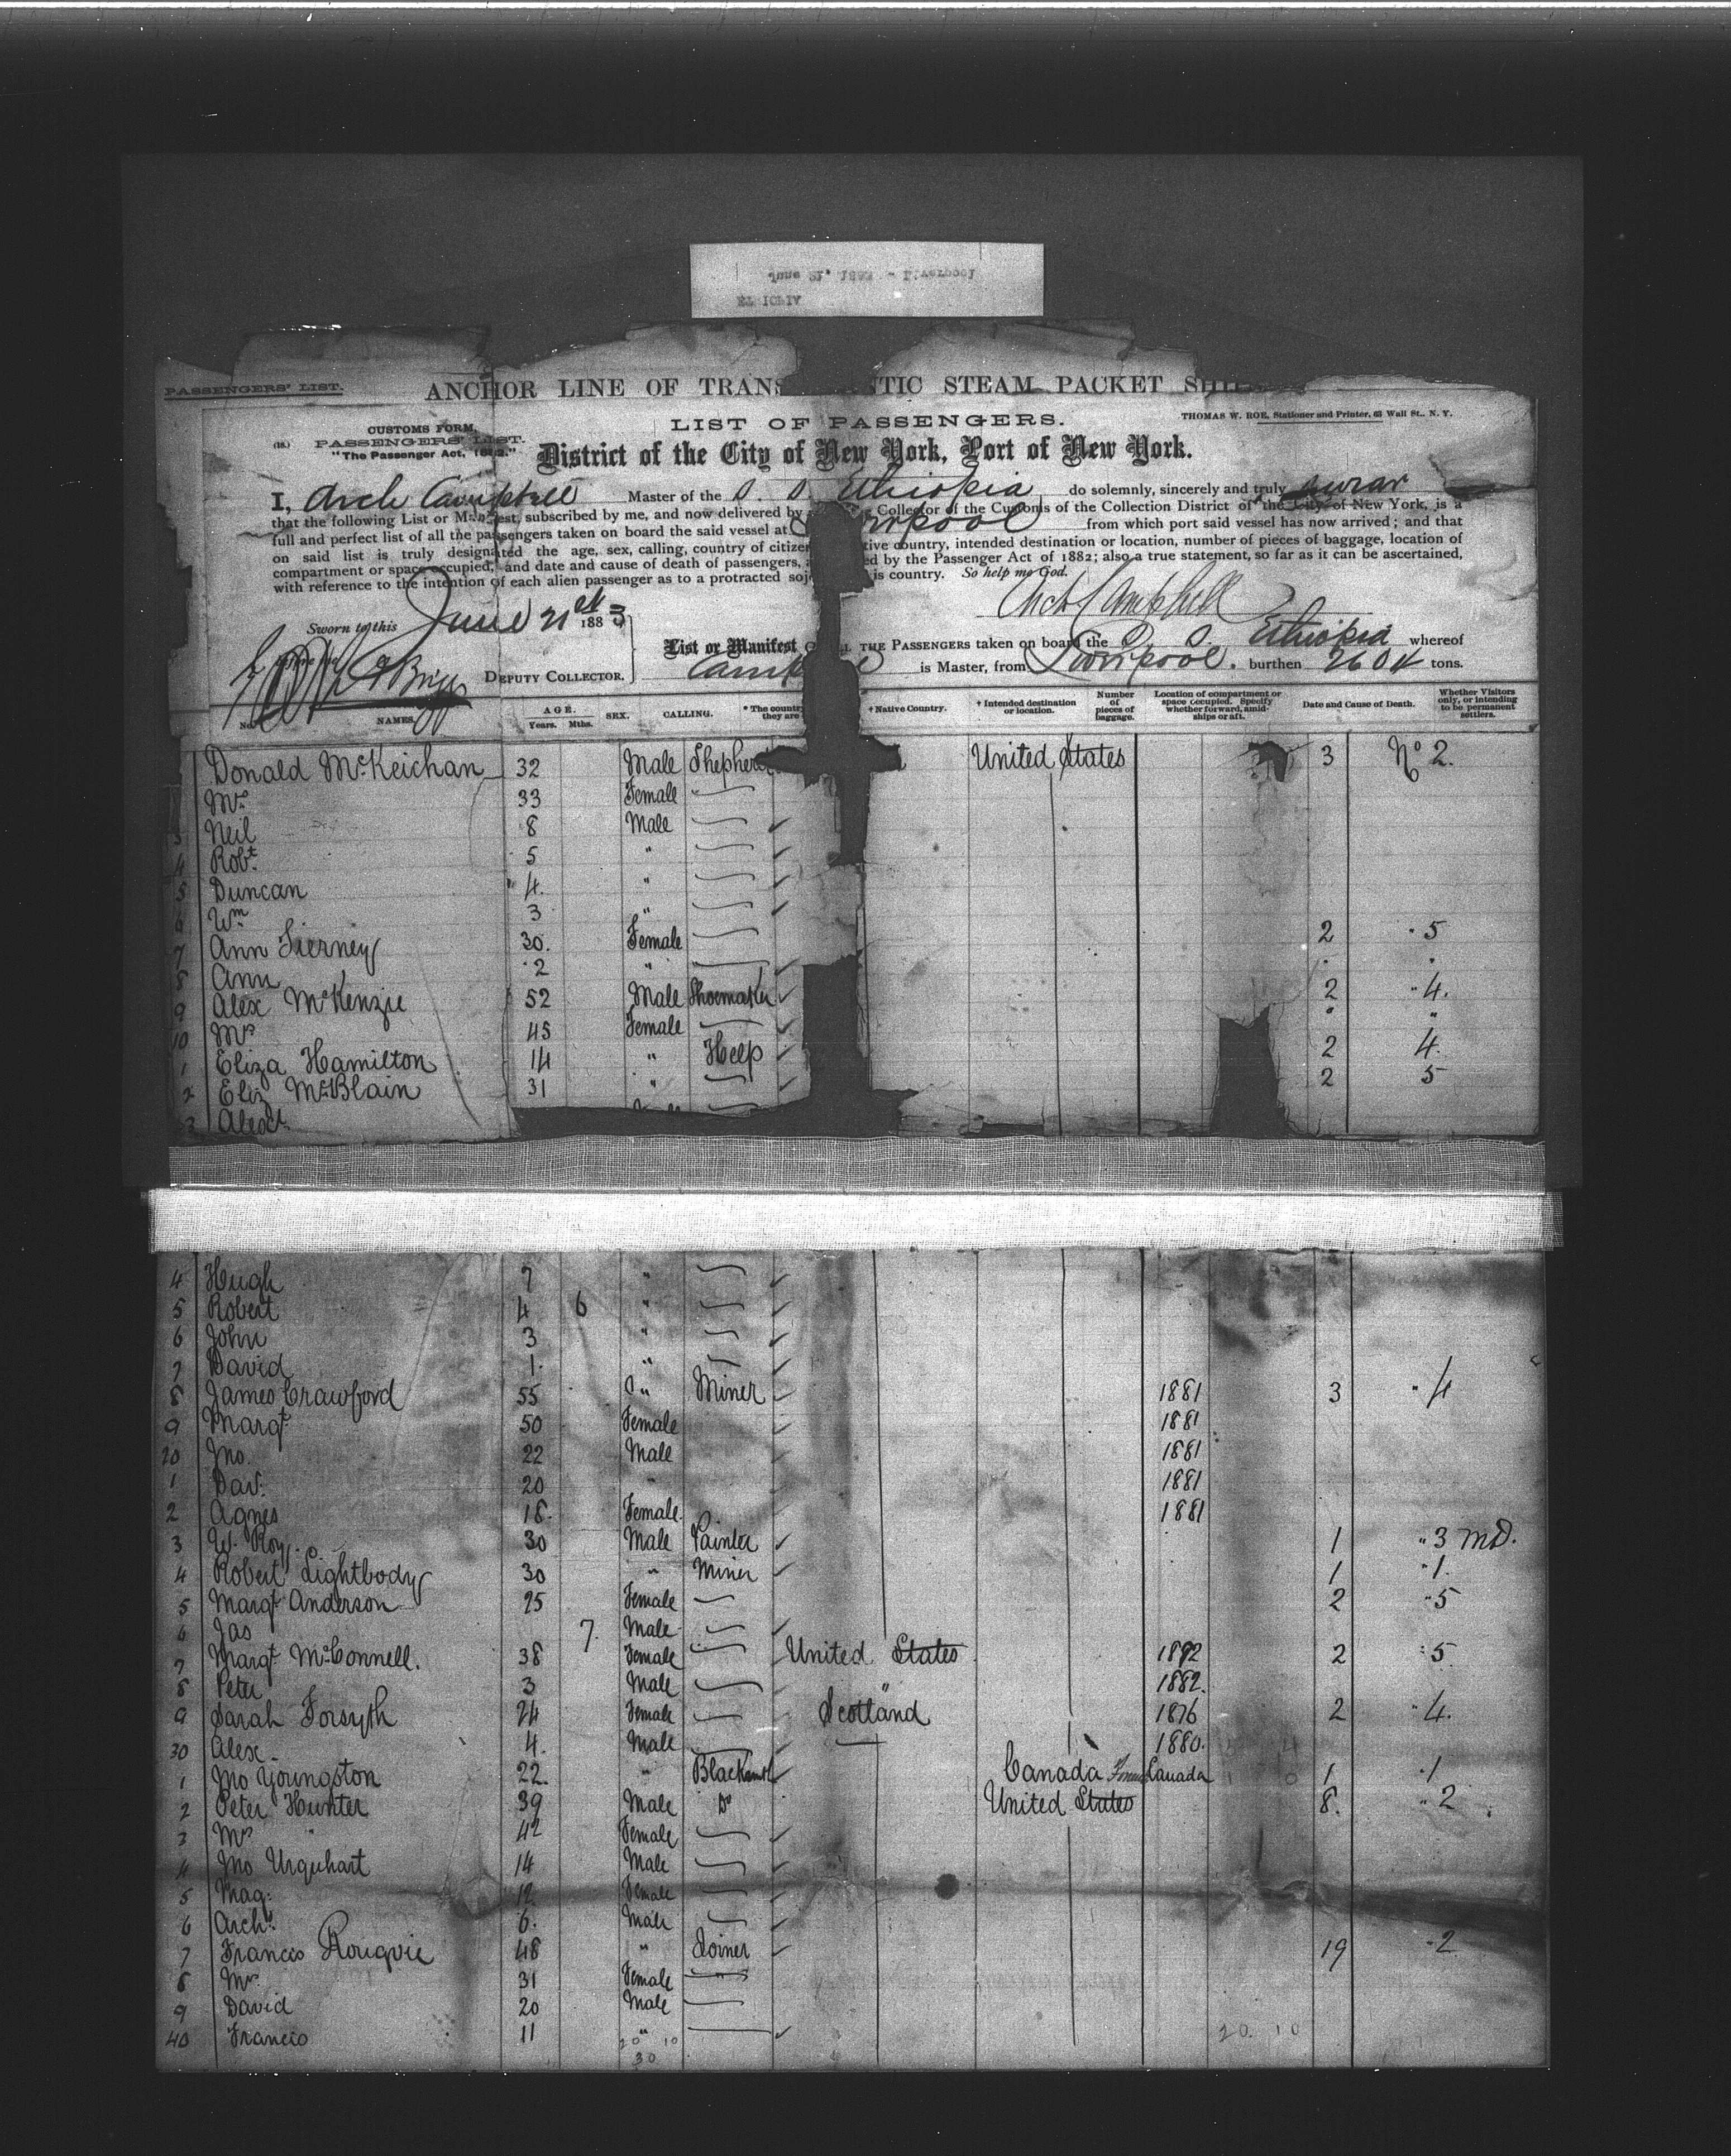 PASSENGERS' LIST.
ANCHOR LINE OF TRANS NTIC STEAM PACKET SHI
THOMAS W. ROE, Stationer and Printer, 63 Wall St., N. Y.
LIST OF PASSENGERS.
CUSTOMS FORM,
(18.) PASSENGERS' LIST.
"The Passenger Act, 1882."
District of the City of New York, Port of New York.
I, Arch Campbell Master of the S. S. Ethiopia do solemnly, sincerely and truly swear
that the following List or Manifest, subscribed by me, and now delivered by Collector of the Customs of the Collection District of the City of New York, is a
full and perfect list of all the passengers taken on board the said vessel at rpool from which port said vessel has now arrived; and that
on said list is truly designated the age, sex, calling, country of citizen tive country, intended destination or location, number of pieces of baggage, location of
compartment or space occupied, and date and cause of death of passengers, ed by the Passenger Act of 1882; also a true statement, so far as it can be ascertained,
with reference to the intention of each alien passenger as to a protracted soj is country. So help me God.
Arch Campbell
Sworn to this June 21st 1883
List or Manifest ALL THE PASSENGERS taken on board the S. S. Ethiopia whereof
DEPUTY COLLECTOR. Camp is Master, from Liverpool. burthen 2604 tons.
No. NAMES. AGE. Years. Mths. SEX. CALLING. * The country they are † Native Country. † Intended destination or location. Number of pieces of baggage. Location of compartment or space occupied. Specify whether forward, amidships or aft. Date and Cause of Death. Whether Visitors only, or intending to be permanent settlers.
Donald McKeichan 32 Male Shepherd United States 3 No 2.
Mrs 33 Female "
3 Neil 8 Male
4 Robt. 5 "
5 Duncan 4. "
6 Wm 3 "
7 Ann Tierney 30. Female 2 " 5
8 Ann 2 " " "
9 Alex McKenzie 52 Male Shoemaker 2 " 4.
10 Mrs 45 Female " "
1 Eliza Hamilton 14 " Help 2 4.
2 Eliz McBlain 31 " 2 5
3 Alexr.
4 Hugh 7 "
5 Robert 4 6 "
6 John 3 "
7 David 1. "
8 James Crawford 55 " Miner 1881 3 " 4
9 Margt 50 Female 1881
20 Jno. 22 Male 1881
1 Dav: 20 " 1881
2 Agnes 18. Female. 1881
3 W. Roy. 30 Male Painter 1 " 3 MD.
4 Robert Lightbody 30 " Miner 1 " 1.
5 Margt Anderson 25 Female 2 " 5
6 Jas 7. Male
7 Margt McConnell. 38 Female United States 1882 2 " 5
8 Peter 3 Male " 1882.
9 Sarah Forsyth 24 Female Scotland 1876 2 " 4.
30 Alex 4. Male 1880.
1 Jno Youngston 22. " Blacksmith Canada Canada 1 " 1
2 Peter Hunter 39 Male Do United States 8. " 2
3 Mrs " 42 Female
4 Jno Urquhart 14 Male
5 Mag: 12. Female
6 Archd. 6. Male
7 Francis Rougvie 48 " Joiner 19 " 2
8 Mrs. 31 Female "
9 David 20 Male
40 Francis 11 "
20 10 20 10
30